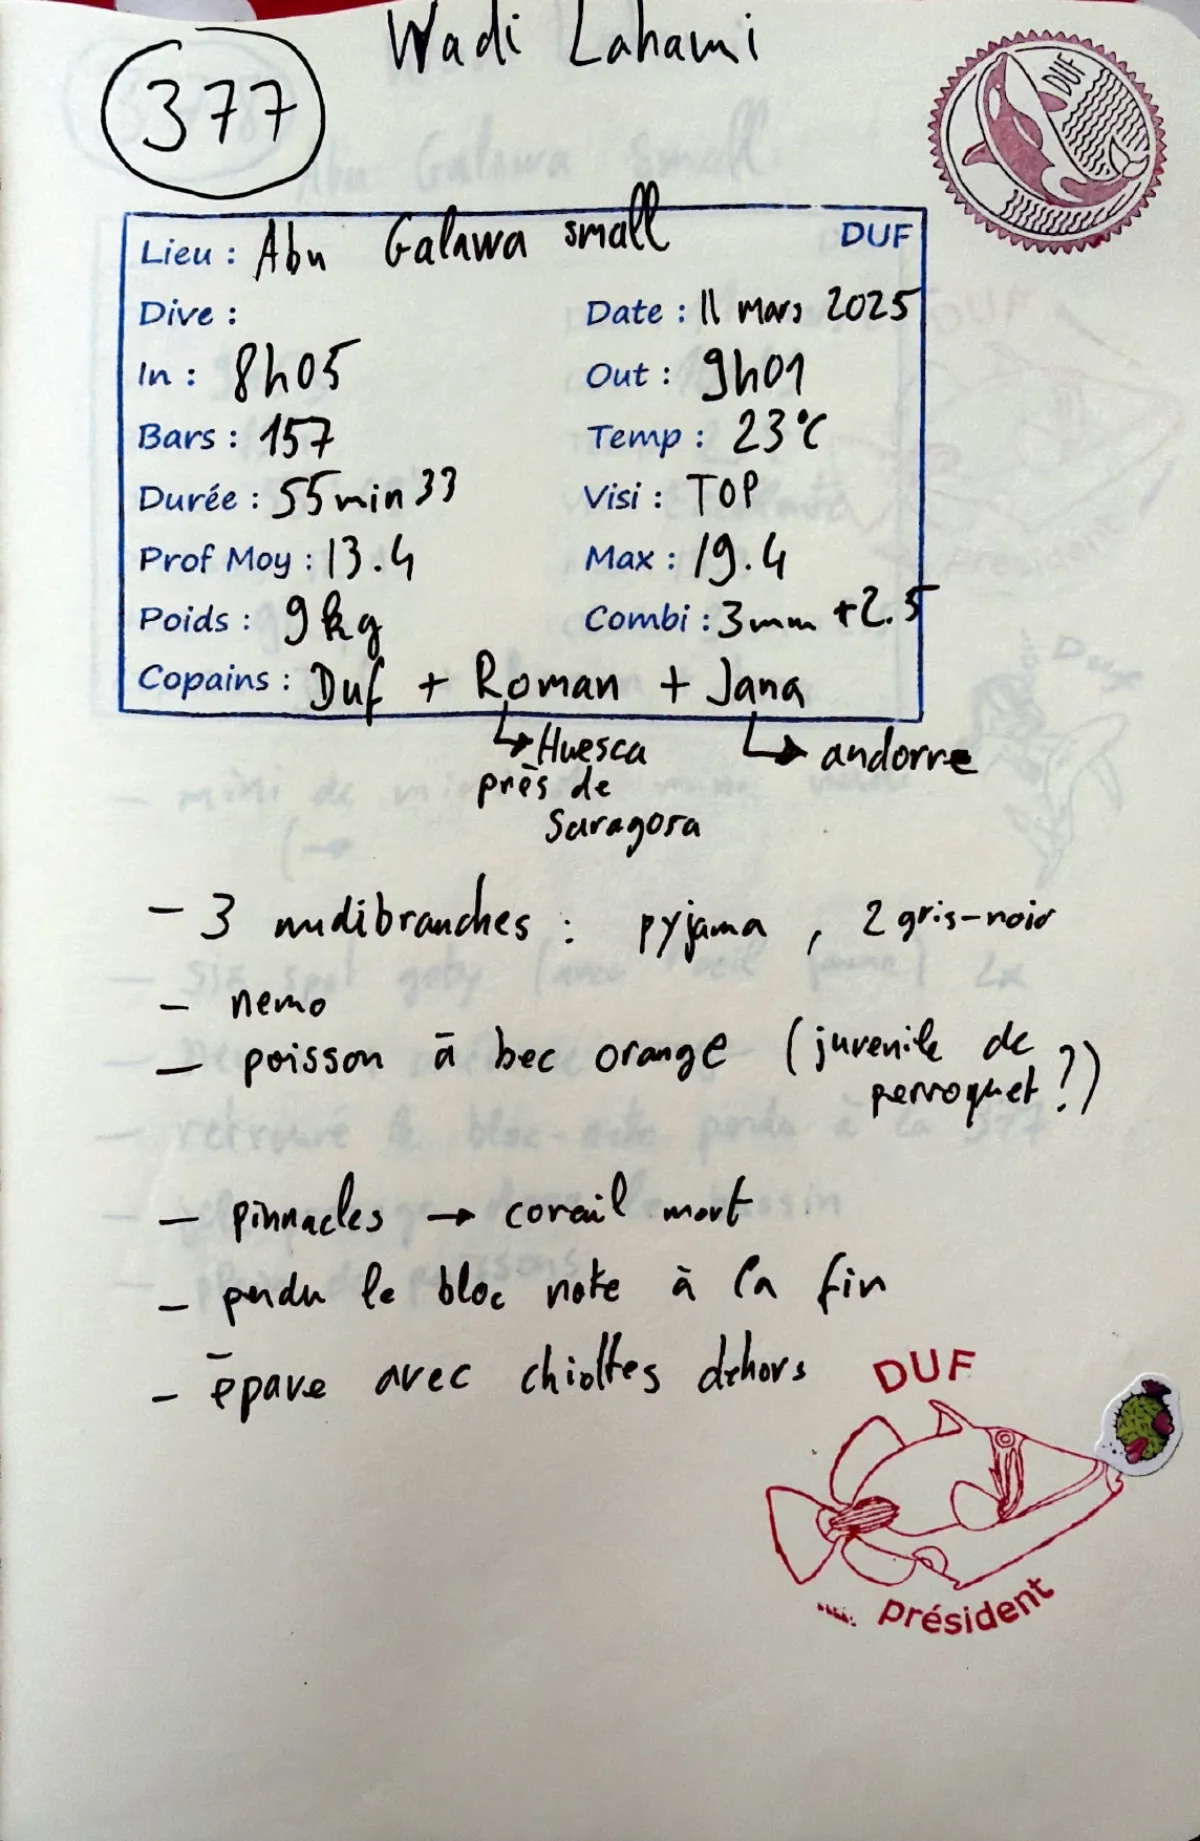 Wadi Lahami
377
DUF
Lieu : Abu Galawa small DUF
Dive : Date : 11 mars 2025
In : 8h05 Out : 9h01
Bars : 157 Temp : 23°C
Durée : 55min33 Visi : TOP
Prof Moy : 13.4 Max : 19.4
Poids : 9kg Combi : 3mm +2.5
Copains : Duf + Roman + Jana
↳ Huesca ↳ andorre
près de
Saragosa
- 3 nudibranches : pyjama , 2 gris-noir
- nemo
- poisson à bec orange (juvenile de
perroquet ?)
- pinnacles → corail mort
- perdu le bloc note à la fin
- épave avec chiottes dehors
DUF
président